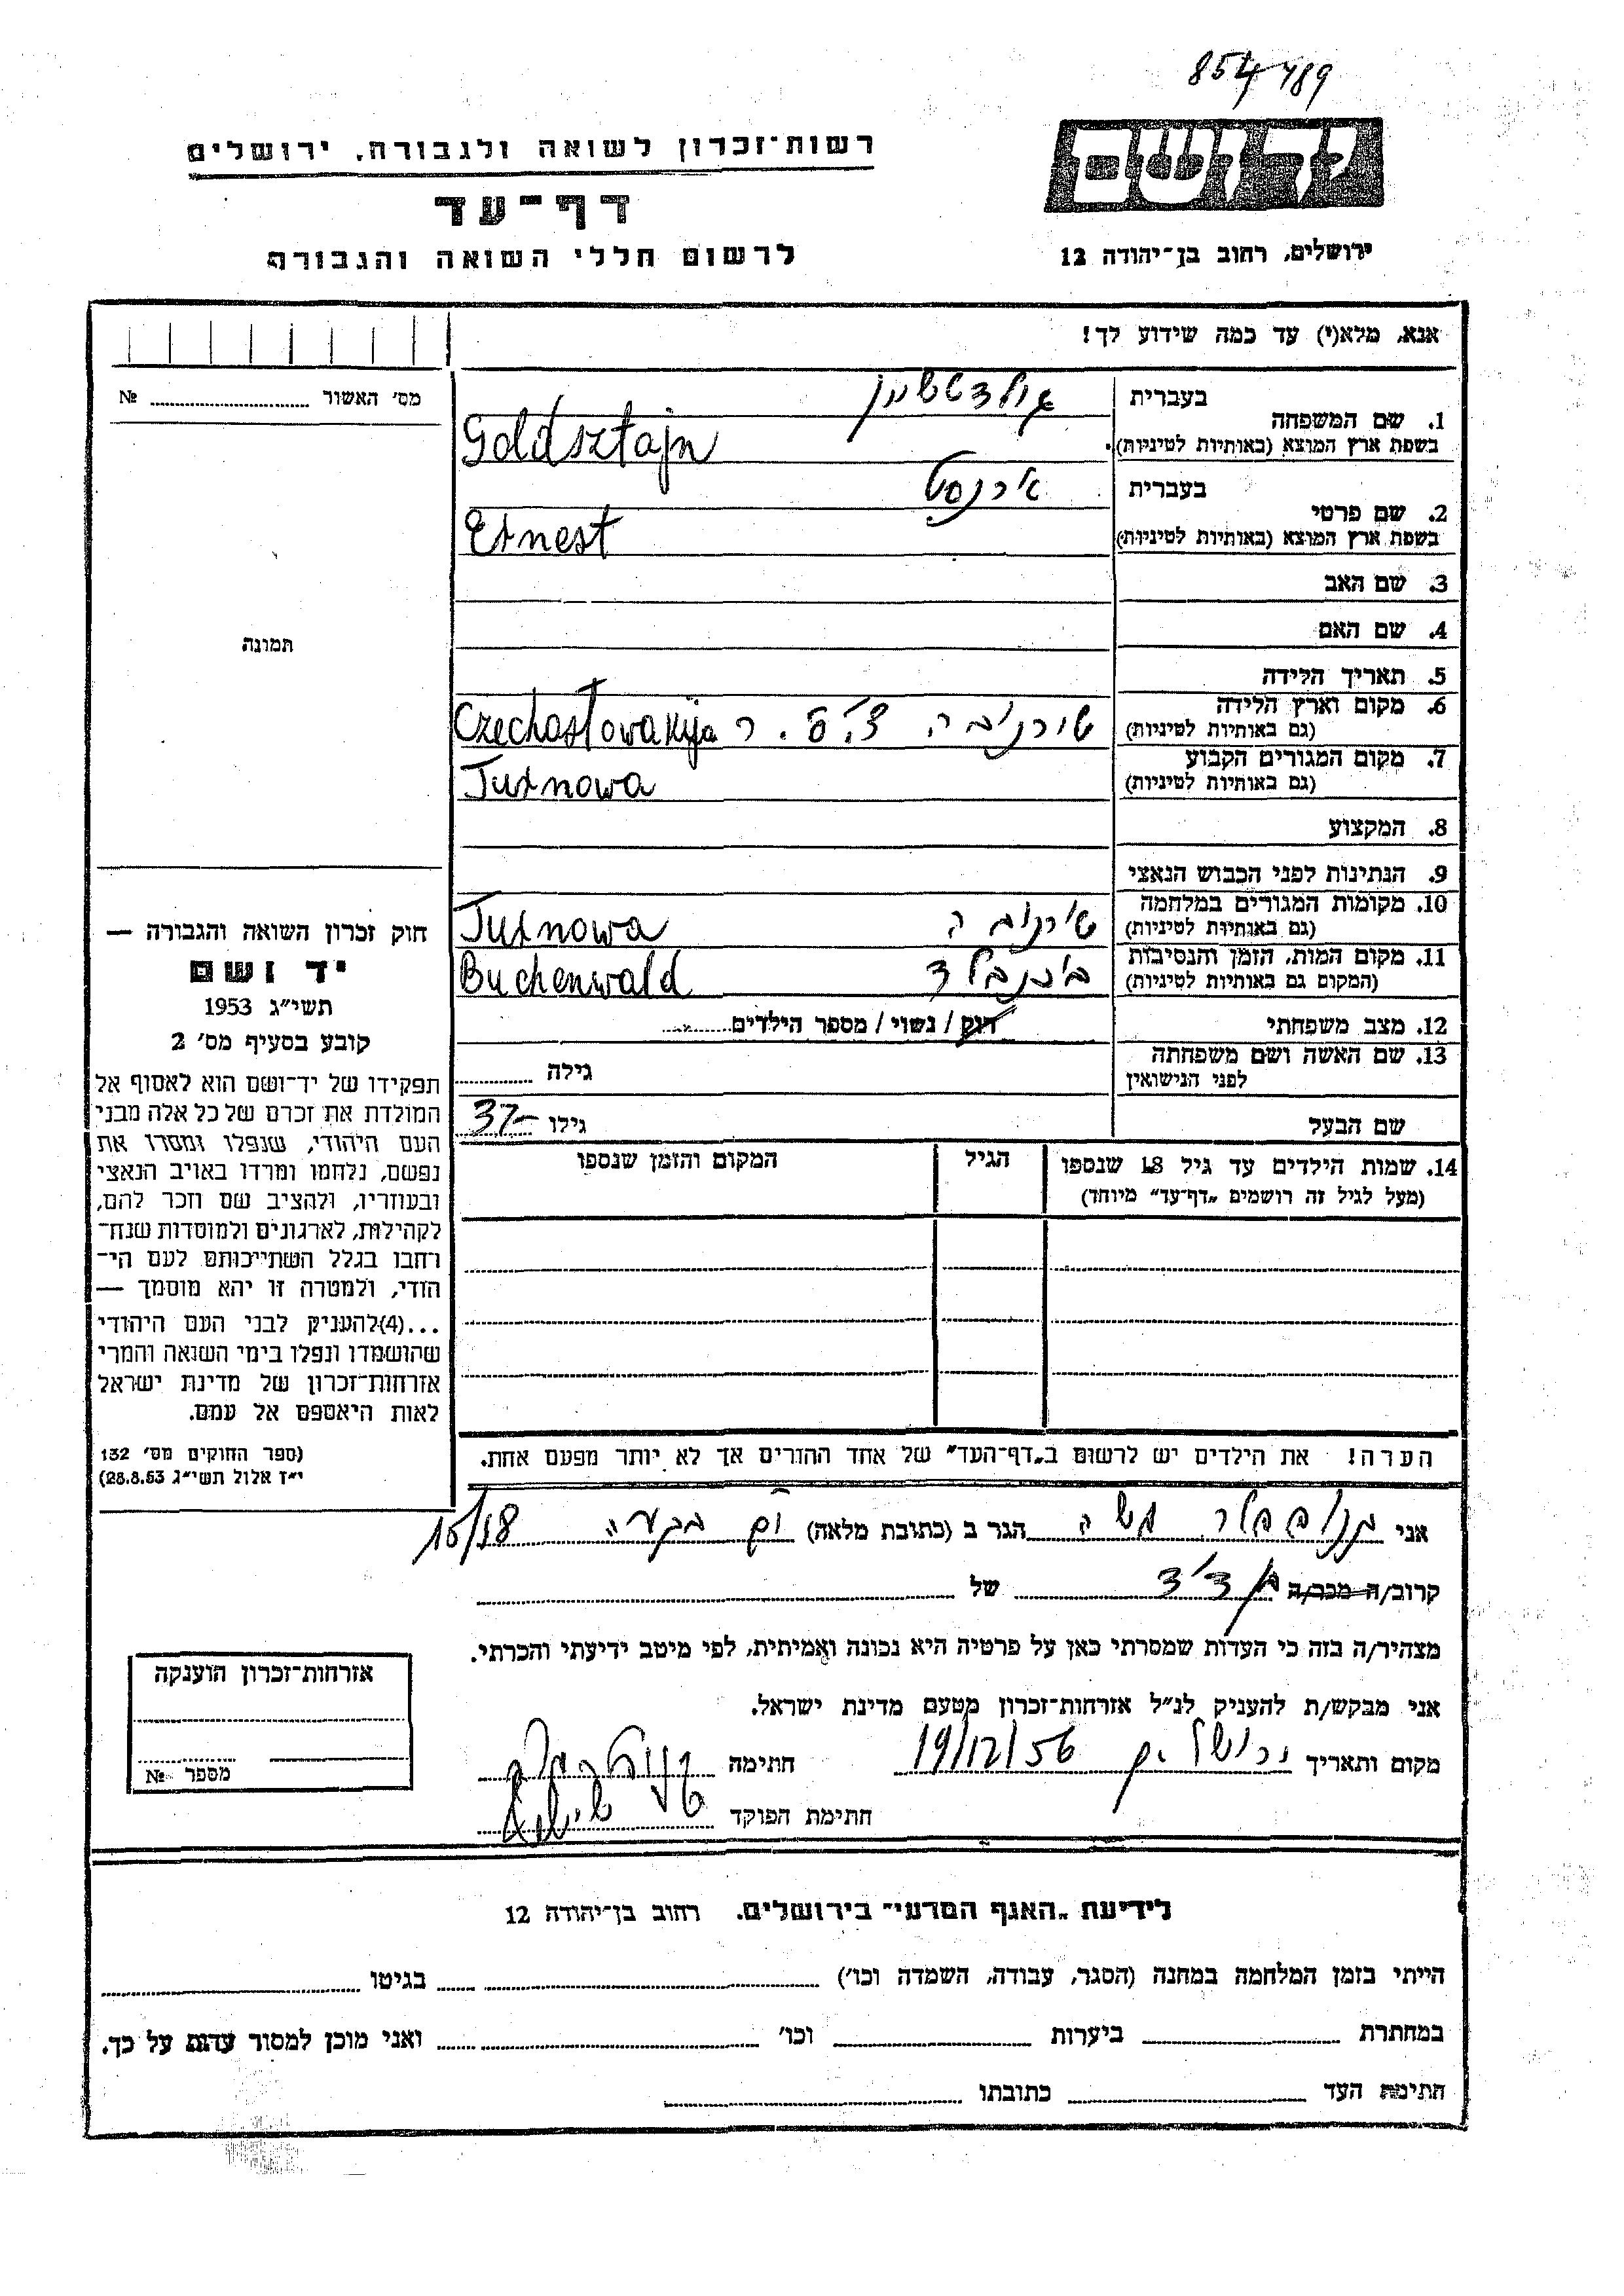 854789
יד ושם
רשות־זכרון לשואה ולגבורה, ירושלים
דף־עד
ירושלים, רחוב בן־יהודה 12
לרשום חללי השואה והגבורה
אנא, מלא(י) עד כמה שידוע לך!
מס׳ האשור № 
1. שם המשפחה בעברית גולדשטיין
בשפת ארץ המוצא (באותיות לטיניות) Goldsztajn
2. שם פרטי בעברית ארנסט
בשפת ארץ המוצא (באותיות לטיניות) Ernest
3. שם האב
4. שם האם
תמונה
5. תאריך הלידה
6. מקום וארץ הלידה
(גם באותיות לטיניות) טורנובה צ׳.ס.ר Czechosłowakija
7. מקום המגורים הקבוע
(גם באותיות לטיניות) Turnowa
8. המקצוע
9. הנתינות לפני הכבוש הנאצי
10. מקומות המגורים במלחמה
(גם באותיות לטיניות) טורנובה Turnowa
11. מקום המות, הזמן והנסיבות
(המקום גם באותיות לטיניות) בוכנבלד Buchenwald
12. מצב משפחתי רוק / נשוי / מספר הילדים
13. שם האשה ושם משפחתה
לפני הנישואין גילה
שם הבעל גילו 37-
14. שמות הילדים עד גיל 18 שנספו הגיל המקום והזמן שנספו
(מעל לגיל זה רושמים „דף־עד” מיוחד)
חוק זכרון השואה והגבורה —
יד ושם
תשי״ג 1953
קובע בסעיף מס׳ 2
תפקידו של יד־ושם הוא לאסוף אל
המולדת את זכרם של כל אלה מבני
העם היהודי, שנפלו ומסרו את
נפשם, נלחמו ומרדו באויב הנאצי
ובעוזריו, ולהציב שם וזכר להם,
לקהילות, לארגונים ולמוסדות שנח־
רחבו בגלל השתייכותם לעם הי־
הודי, ולמטרה זו יהא מוסמך —
...(4)להעניק לבני העם היהודי
שהושמדו ונפלו בימי השואה והמרי
אזרחות־זכרון של מדינת ישראל
לאות היאספם אל עמם.
(ספר החוקים מס׳ 132
י״ז אלול תשי״ג 28.8.53)
הערה! את הילדים יש לרשום ב„דף־העד” של אחד ההורים אך לא יותר מפעם אחת.
אני משה הגר ב (כתובת מלאה) בקעה 18/
קרוב/ה מכר/ה של
מצהיר/ה בזה כי העדות שמסרתי כאן על פרטיה היא נכונה ואמיתית, לפי מיטב ידיעתי והכרתי.
אני מבקש/ת להעניק לנ״ל אזרחות־זכרון מטעם מדינת ישראל.
מקום ותאריך ירושלים 19/12/56 חתימה
חתימת הפוקד
אזרחות־זכרון הוענקה
מספר №
לידיעת „האגף המדעי” בירושלים, רחוב בן־יהודה 12
הייתי בזמן המלחמה במחנה (הסגר, עבודה, השמדה וכו׳) בגיטו
במחתרת ביערות וכו׳ ואני מוכן למסור עדות על כך.
חתימת העד כתובתו